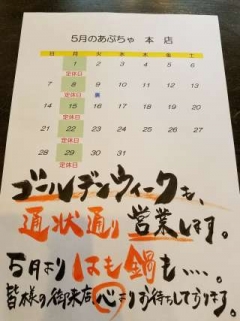 5月のあぷちゃ 本 店
日 月 火 水 木 金 土
1 2 3 4 5 6
定休日
7 8 9 10 11 12 13
定休日
14 15 16 17 18 19 20
定休日
21 22 23 24 25 26 27
定休日
28 29 30 31
定休日
ゴールデンウィークも、
通状通り営業します。
5月より はも鍋も‥‥。
皆様の御来店心よりお待ちしております。